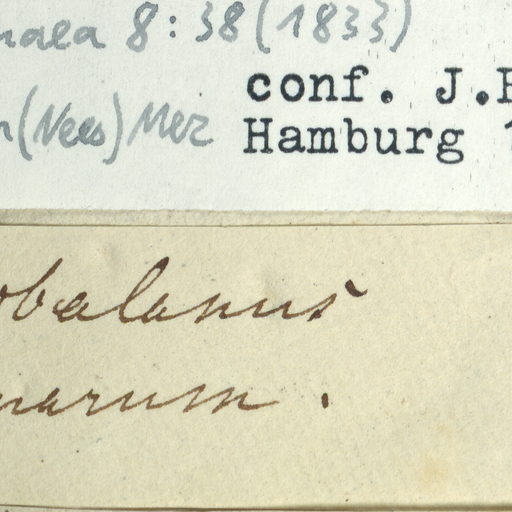 naea 8:38 (1833)
conf. J.
(Nees) Merr
Hamburg 1
obalanus
narum.